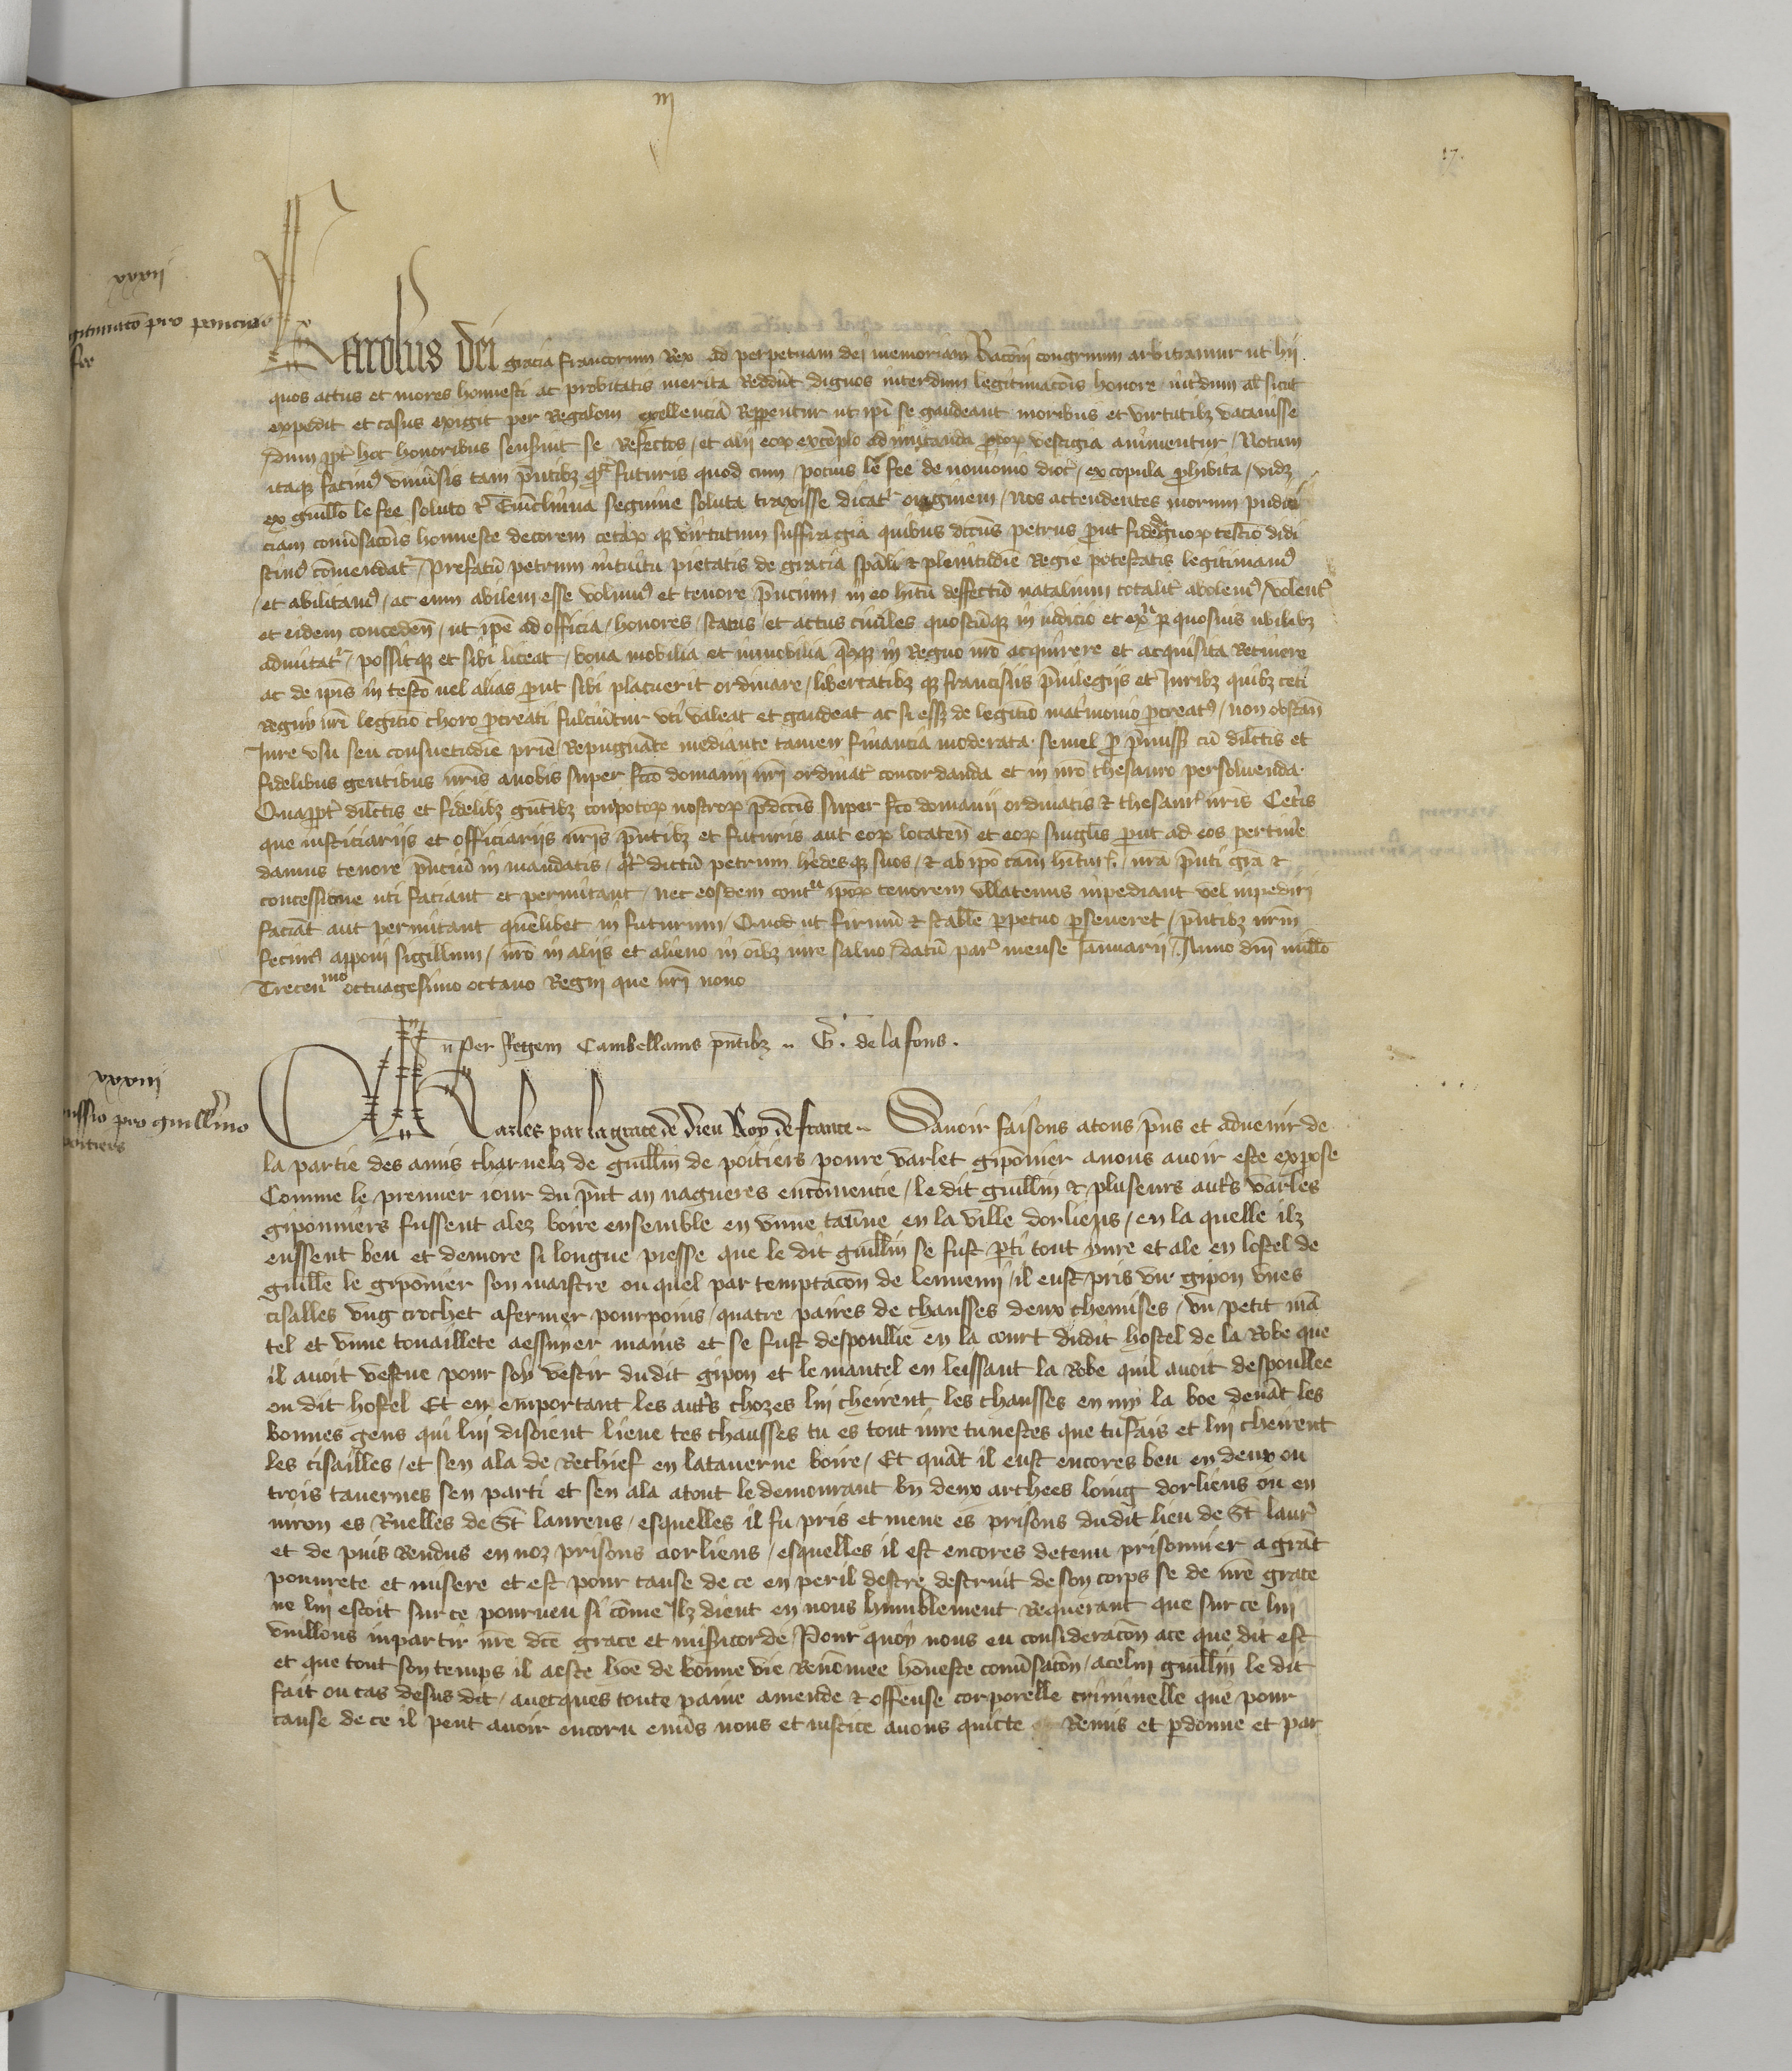 17.
xxxii
gitimatō pro
fee
Karolus dei gracia francorum Rex ad perpetuam dei memoriam Racōni congruum arbitramur ut hii
quos actus et mores honnesti ac probitatis merita Reddūt dignos interdum legitimacōis honore int̄dum al̄ sicut
expedit et casus exigit per Regalem excellenciā Repperientur ut ip̄i se gaudeant moribus et virtutibz vacauisse
dum ppt̄ hoc honoribus senserint se Refectos / et alii eoꝝ exēplo ad imitanda vestigia animentur / Notum
itaqꝫ facimꝰ vniu̅sis tam p̄ntibz qͣ futuris quod cum petrus le fee de nouionio dioc̄ / ex copula ꝓhibita / vidz
ex guill̄o le fee soluto et seguine soluta traxisse dicatͬ originem / Nos attendentes morum pudici
ciam conu̅sacōis honneste decorem ceteꝝ qꝫ virtutum suffragia quibus dictus petrus ꝓut fidedignoꝝ testīo didi
scimꝰ cōmendatͬ / Prefatū petrum intuitu pietatis de gracia sp̄ali et plenitudīe Regie potestatis legitimamꝰ
/ et abilitamꝰ / ac eum abilem esse volumꝰ et tenore p̄ncium in eo hītū deffectū natalium totalit̄ abolemꝰ / volent̄
et eidem conceden̄ / ut ip̄e ad officia / honores / status / et actus ciuiles quoscūqꝫ in iudicio et exͣ p quosuis ubilibz
admitatͬ / possitqꝫ et sibi liceat / bona mobilia et inmobilia in Regno nr̄o acquirere et acquisita Retinere
ac de ip̄is in testō uel alias ꝓut sibi placuerit ordinare / libertatibz qꝫ franchisiis p̄uilegiis et Iuribz quibz cet̄i
Regni nr̄i legitīo thoro ꝓcreati fulciūtur uti valeat et gaudeat ac si esset de legitīo mat̄monio ꝓcreatꝰ / non obstan̄
Iure vsu seu consuetudīe Repugnāte mediante tamen financia moderata semel cū dilectis et
fidelibus gentibus nr̄is a nobis super fcō domanii nr̄i ordinat̄ concordanda et in nr̄o thesauro persoluenda.
Quappt̄ dilectis et fidelibz gentibz compotoꝝ nostroꝝ p̄dcīs super fcō domanii ordinatis et thesaur̄ nr̄is Cet̄is
que iusticiariis et officiariis nr̄is p̄ntibz et futuris aut eoꝝ locaten̄ et eoꝝ singlis ꝓut ad eos pertin̄e
damus tenore p̄nciū in mandatis / qt̄ dictū petrum heredesqꝫ suos / et ab ipō cām hītur̄ / nr̄a p̄nti grā et
concessione uti faciant et permitant / nec eosdem contͣ ip̄oꝝ tenorem vllatenus inpediant vel inpediri
faciāt aut permitant quēlibet in futurum / Quod ut firmū et stable ppetuo pseueret / p̄ntibz nr̄m
fecimꝰ apponi sigillum / nr̄o in aliis et alieno in oībz iure saluo / datū parͥ mense Ianuarii / Anno dn̄i millō
Trecen mo octuagesimo octauo Regni que nr̄i nono
per Regem Cambellanis p̄ntibz .. G̅. de la fons.
xxxiii
issio pro guill̄mo
poitiers
Charles par la grace de dieu Roy de france .. Sauoir faisons a tous p̄ns et aduenir de
la partie des amis charnelz de guill̄in de poitiers poure varlet gipōnier a nous auoir este expose
Comme le premier iour du p̄nt an nagueres encōmencie / le dit guill̄in et pluseurs aut̄s varles
giponniers fussent alez boire ensemble en vnne tau̅ne en la ville dorliens / en la quelle ilz
eussent beu et demore si longue piesse que le dit guill̄in se fust p̄ti tout yure et ale en lostel de
guill̄e le gipōnier son maistre ou quel par temptacōn de lennemi / il eust pris vn gipon vnes
cisailles vng crochet a fermer pourpoins / quatre paires de chausses deux chemises / vn petit mā
tel et vnne touaillete a essuyer mains et se fust despoullie en la court dudit hostel de la Robe que
il auoit vestue pour soy vestir dudit gipon et le mantel en leissant la Robe quil auoit despoullee
ou dit hostel Et en emportant les aut̄s chozes lui cheirent les chausses en my la boe deuāt les
bonnes gens qui lui disoient lieue tes chausses tu es tout iure tu nestes que tu fais et lui cheirent
les cisailles / et sen ala de Rechief en la tauerne boire / Et quāt il eust encores beu en deux ou
trois tauernes sen parti et sen ala atout le demourant bn̄ deux archees loing dorliens ou en
uiron es Ruelles de St̄ laurens / esquelles il fu pris et mene es prisons dudit lieu de St̄ laur̄
et de puis Rendus en noz prisons dorliens / esquelles il est encores detenu prisonnier a grāt
pouurete et misere et est pour cause de ce en peril destre destruit de son corps se de nr̄e grace
ne lui estoit sur ce pourueu si cōme Ilz dient en nous humblement Requerant que sur ce lui
vuillons inpartir nr̄e dc̄e grace et mis̄icorde / Pour quoy nous eu consideracōn a ce que dit est
et que tout son temps il a este hōe de bonne vie Renōmee hōneste conu̅sacōn / a celui guill̄in le dit
fait ou cas desus dit / auecques toute paine amende et offense corporelle criminelle que pour
cause de ce il peut auoir encoru enu̅s nous et iustice auons quicte Remis et pdonne et par